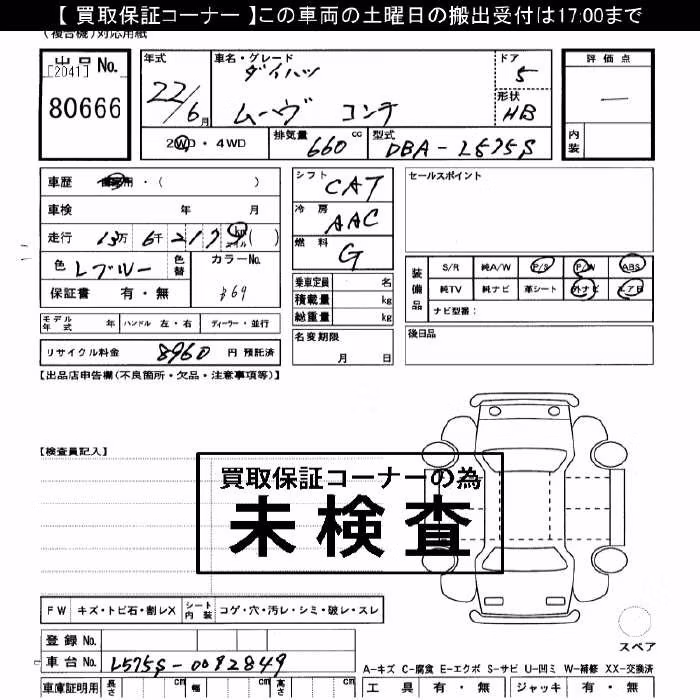 【 買取保証コーナー 】この車両の土曜日の搬出受付は17:00まで
(複合機)対応用紙
出品 No. [2041]
80666
年式 車名・グレード ドア 評価点
ダイハツ 5
22/6月 ムーヴ コンテ 形状 HB
内装
2WD・4WD 排気量 660 cc 型式 DBA-L575S
車歴 ・( )
車検 年 月
走行 13万 6千 217 km マイル ( )
色 Lブルー 色替 カラーNo.
保証書 有・無
シフト CAT
冷房 AAC
燃料 G
乗車定員 名
積載量 kg
総重量 kg
名変期限 月 日
セールスポイント
装備品 S/R 純A/W P/S P/W ABS
純TV 純ナビ 革シート 外ナビ エアB
ナビ型番:
後日品
モデル年式 年 ハンドル 左・右 ディーラー・並行
リサイクル料金 8960 円 預託済
【出品店申告欄(不良箇所・欠品・注意事項等)】
【検査員記入】
買取保証コーナーの為
未検査
FW キズ・トビ石・割レX シート内装 コゲ・穴・汚レ・シミ・破レ・スレ
スペア
登録 No.
車台 No. L575S-0082849
A-キズ C-腐食 E-エクボ S-サビ U-凹ミ W-補修 XX-交換済
車庫証明用 長さ cm 幅 cm 高さ cm
工具 有・無 ジャッキ 有・無